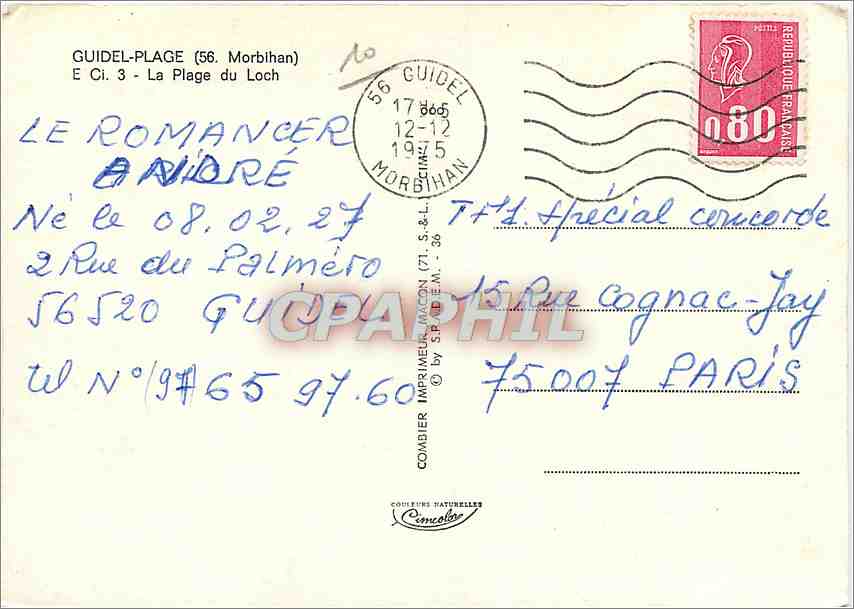 GUIDEL-PLAGE (56. Morbihan)
E Ci. 3 - La Plage du Loch
10
56 GUIDEL
12-12
MORBIHAN
POSTES
REPUBLIQUE FRANÇAISE
0,80
LE ROMANCER
ANDRÉ
Né le 08.02.27
2 Rue du Palméro
56520 GUIDEL
tel N° (97) 65 97.60
TF1. Spécial concorde
15 Rue Cognac-Jay
75007 PARIS
COMBIER IMPRIMEUR MACON (71. S.-&-L.) CIM
© by S.P.A.D.E.M. - 36
CPAPHIL
COULEURS NATURELLES
Cimcolor